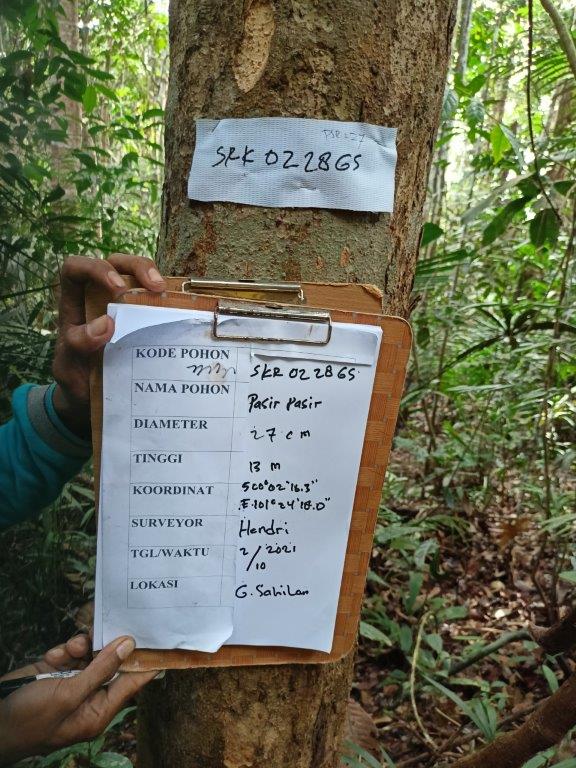 SRK 0228GS
KODE POHON SKR 0228GS
NAMA POHON Pasir Pasir
DIAMETER 27 cm
TINGGI 13 m
KOORDINAT S 00°02'16.3"
E.101°24'18.0"
SURVEYOR Hendri
TGL/WAKTU 2/10 2021
LOKASI G. Sahilan